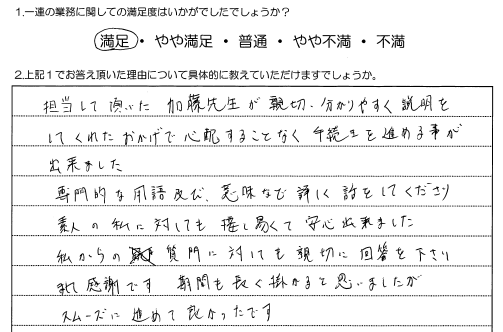 1.一連の業務に関しての満足度はいかがでしたでしょうか？
満足 ・ やや満足 ・ 普通 ・ やや不満 ・ 不満
2.上記１でお答え頂いた理由について具体的に教えていただけますでしょうか。
担当して頂いた 加藤先生が親切、分かりやすく説明を
してくれたおかげで心配することなく手続きを進める事が
出来ました
専門的な用語及び、意味など詳しく話をしてくださり
素人の私に対しても接し易くて安心出来ました
私からの質門に対しても親切に回答を下さり
まして感謝です 期間も長く掛かると思いましたが
スムーズに進めて良かったです